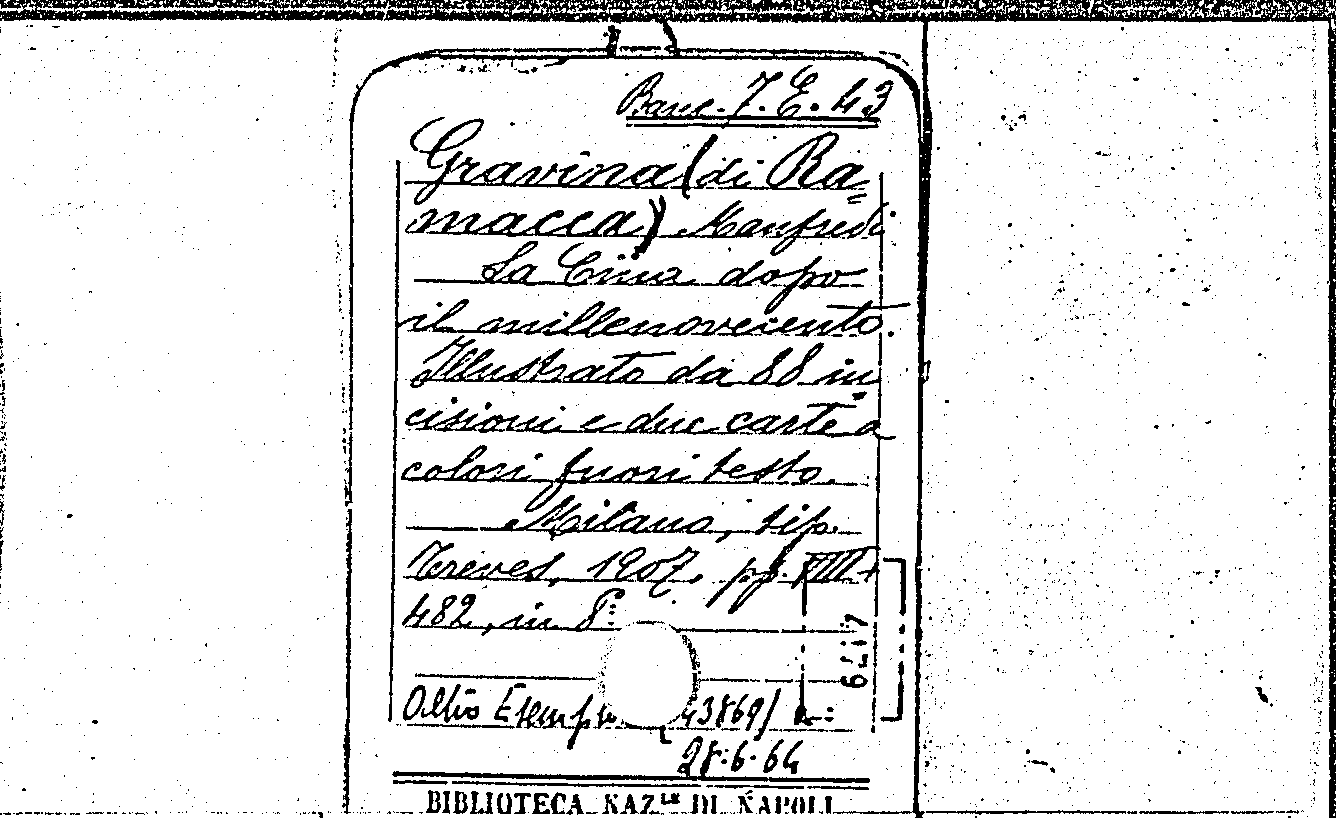 Banc. 7. E. 43
Gravina (di Ra=
macca) Manfredi
La Cina dopo
il millenovecento.
Illustrato da 88 in=
cisioni e due carte a
colori fuori testo.
Milano, tip.
Treves, 1907. pp. VIII+
482, in 8°.
Altro 43869/
28.6.64
BIBLIOTECA NAZ.LE DI NAPOLI